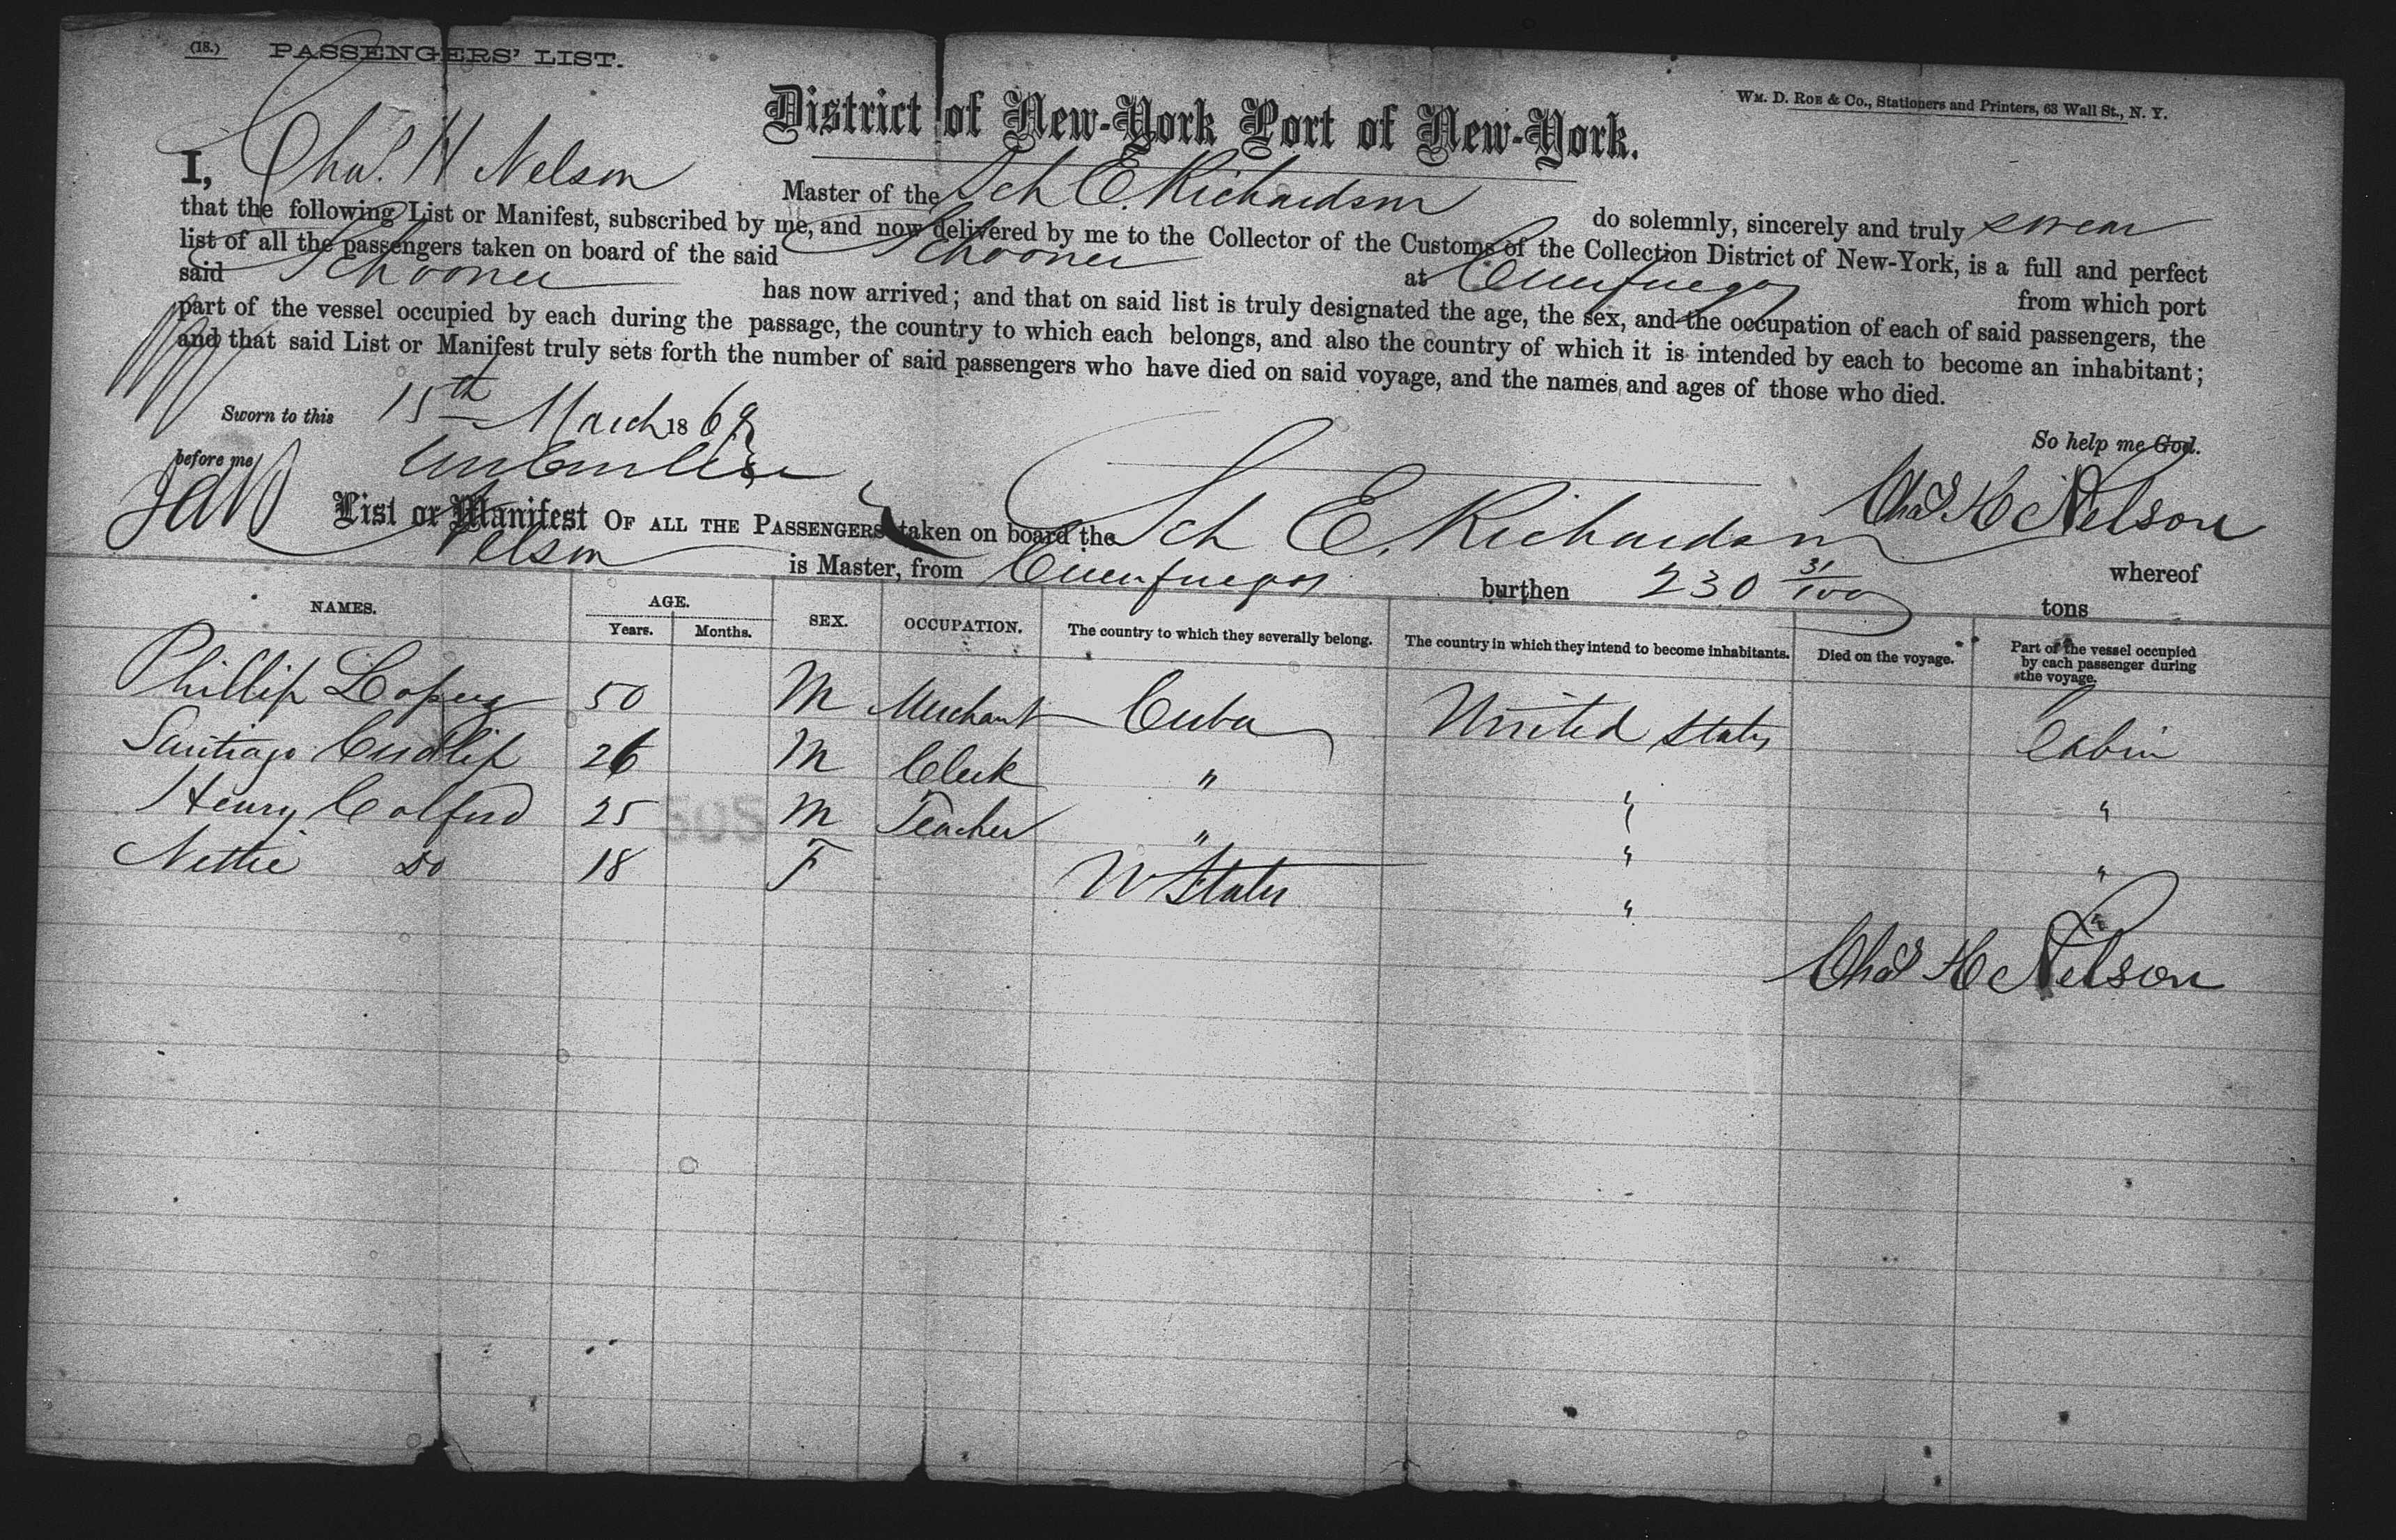 (18.) PASSENGERS' LIST.
WM. D. ROE & CO., Stationers and Printers, 63 Wall St., N. Y.
District of New-York Port of New-York.
I, Chas. H Nelson Master of the Sch E. Richardson do solemnly, sincerely and truly swear
that the following List or Manifest, subscribed by me, and now delivered by me to the Collector of the Customs of the Collection District of New-York, is a full and perfect
list of all the passengers taken on board of the said Schooner at Cienfuegos from which port
said Schooner has now arrived; and that on said list is truly designated the age, the sex, and the occupation of each of said passengers, the
part of the vessel occupied by each during the passage, the country to which each belongs, and also the country of which it is intended by each to become an inhabitant;
and that said List or Manifest truly sets forth the number of said passengers who have died on said voyage, and the names and ages of those who died.
Sworn to this 15th March 1869
So help me God.
before me
Chas H Nelson
List or Manifest OF ALL THE PASSENGERS taken on board the Sch E. Richardson whereof
Nelson is Master, from Cienfuegos burthen 230 31/100 tons
NAMES. AGE. SEX. OCCUPATION. The country to which they severally belong. The country in which they intend to become inhabitants. Died on the voyage. Part of the vessel occupied by each passenger during the voyage.
Years. Months.
Phillip Lopez 50 M Merchant Cuba United States Cabin
Santiago Cudlip 26 M Clerk " " "
Henry Colford 25 M Teacher " " "
Nettie Do 18 F U States " "
Chas H Nelson